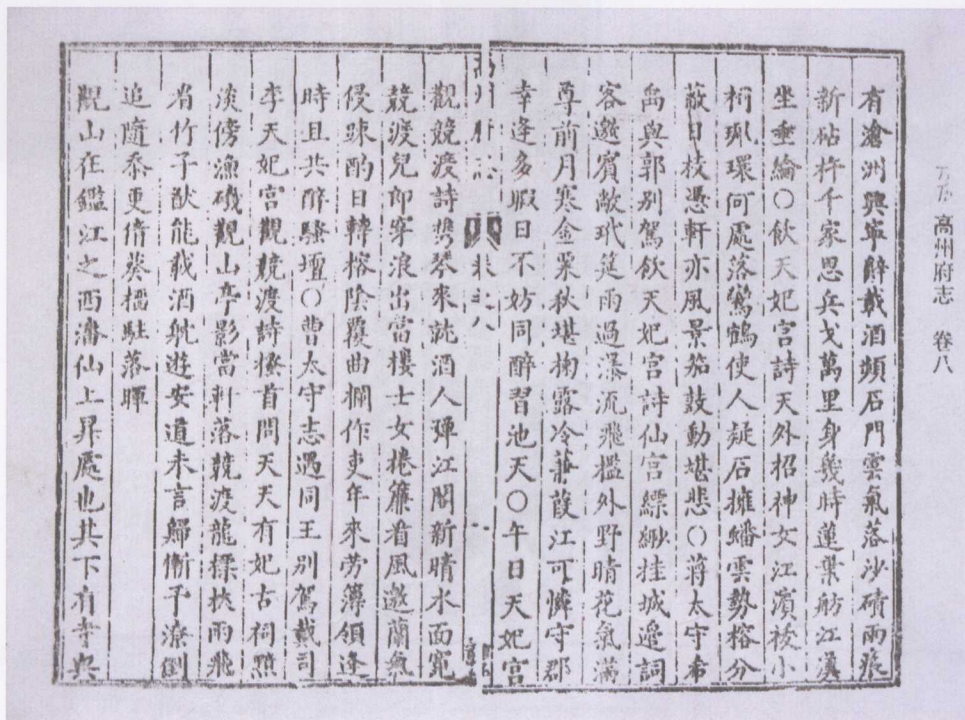 高州府志 卷八
有滄洲興寧辭載酒頻石門雲氣落沙磧雨痕
新砧杵千家思兵戈萬里身幾時蓮葉舫江溪
坐垂綸○飲天妃宮詩天外招神女江濱校小
柯珮環何處落鸞鶴使人疑石擁蟠雲勢榕分
蔽日枝憑軒亦風景笳鼓動堪悲○蔣太守希
禹與郭別駕飲天妃宮詩仙宮縹緲挂城邊詞
客邀賓敞玳筵雨過瀑流飛檻外野晴花氣滿
尊前月寒金粟秋堪掬露冷蒹葭江可憐守郡
幸逢多暇日不妨同醉習池天○午日天妃宮
高州府志 卷之八
觀競渡詩携琴來就酒人彈江閣新晴水面寬
競渡兒郎穿浪出當樓士女捲簾看風邀蘭氣
侵疎酌日轉榕陰覆曲欄作吏年來勞簿領逢
時且共醉騷壇○曹太守志遇同王別駕戴司
李天妃宮觀競渡詩搔首問天天有妃古祠照
淡傍漁磯觀山亭影當軒落競渡龍標挾雨飛
看竹子猷能載酒航遊安道未言歸慚予潦倒
追隨忝更倩蔡檣駐落暉
觀山在鑑江之西潘仙上昇處也其下有寺與